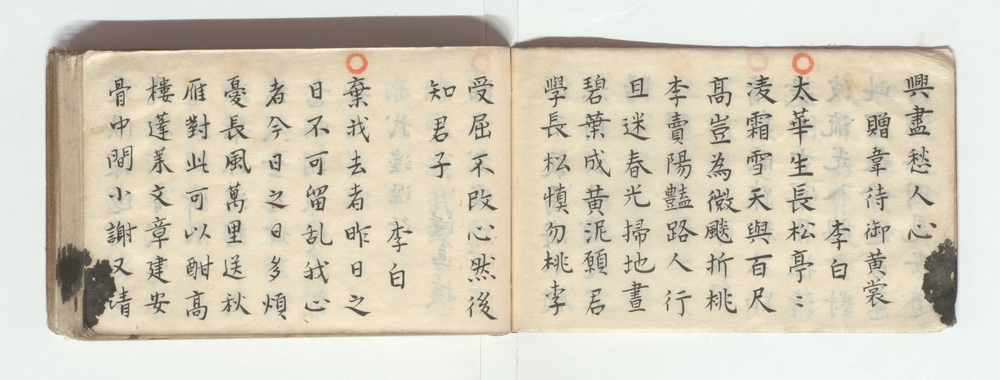 興盡愁人心
贈韋待御黄裳
李白
太華生長松亭〻
凌霜雪天與百尺
髙豈為微飈折桃
李賣陽豔路人行
旦迷春光掃地晝
碧葉成黄泥願君
學長松慎勿桃李
受屈不改心然後
知君子
李白
棄我去者昨日之
日不可留乱我心
者今日之日多煩
憂長風萬里送秋
雁對此可以酣髙
樓蓬萊文章建安
骨中間小謝又清